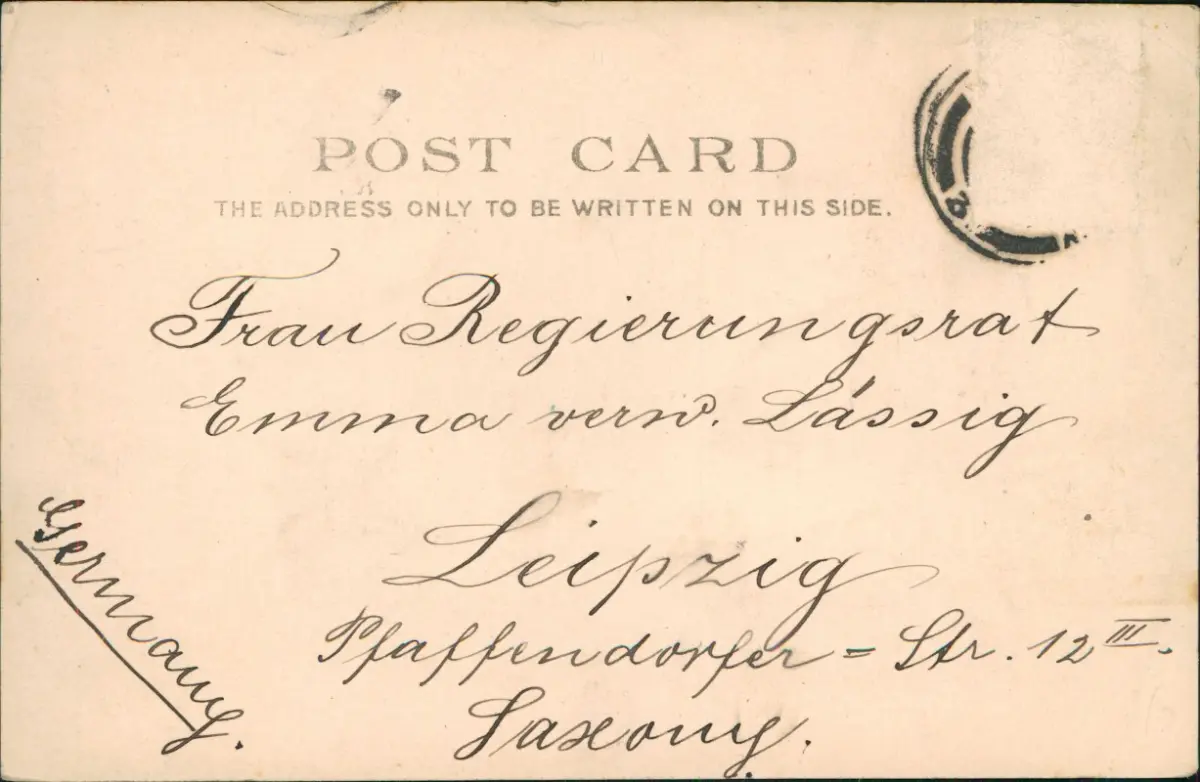 POST CARD
THE ADDRESS ONLY TO BE WRITTEN ON THIS SIDE.
Frau Regierungsrat
Emma verw. Lässig
Leipzig
Pfaffendorfer = Str. 12 III.
Saxony.
Germany.